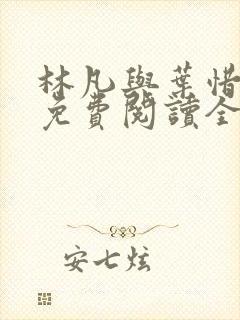 林凡與葉惜
免費閱讀全
安七炫